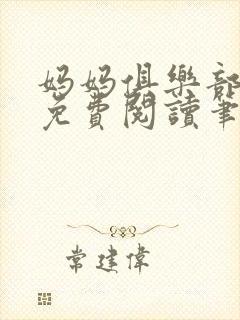 妈妈俱樂部
免費閱讀筆
常建偉